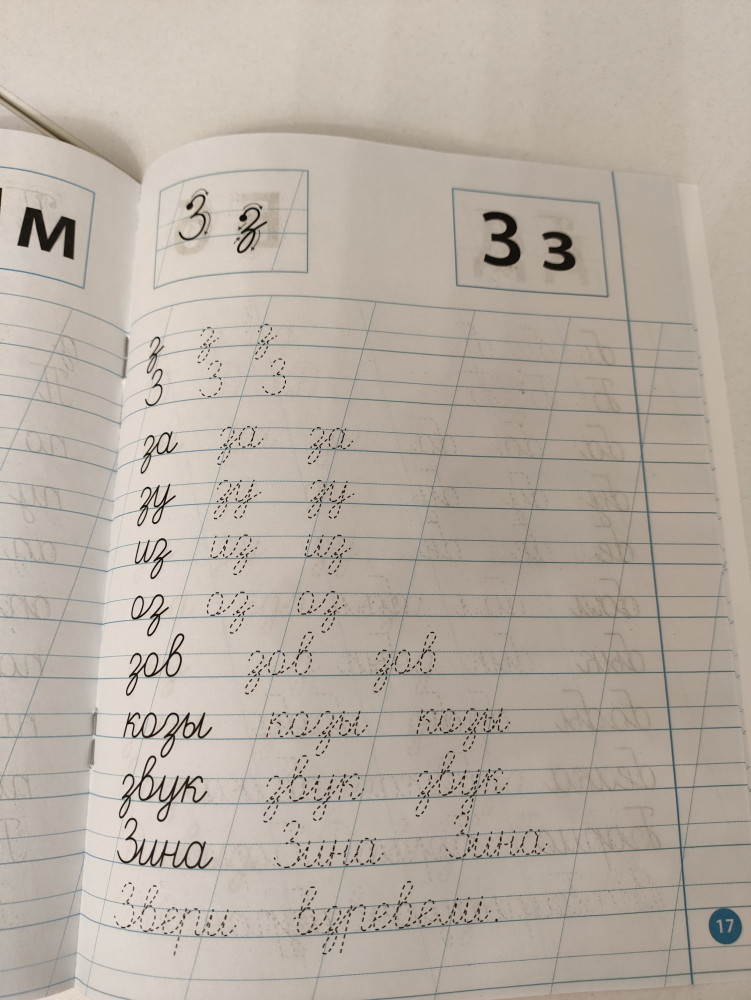 м
З з
З з
з з з
З З З
за за за
зу зу зу
из из из
оз оз оз
зов зов зов
козы козы козы
звук звук звук
Зина Зина Зина
Звери
17